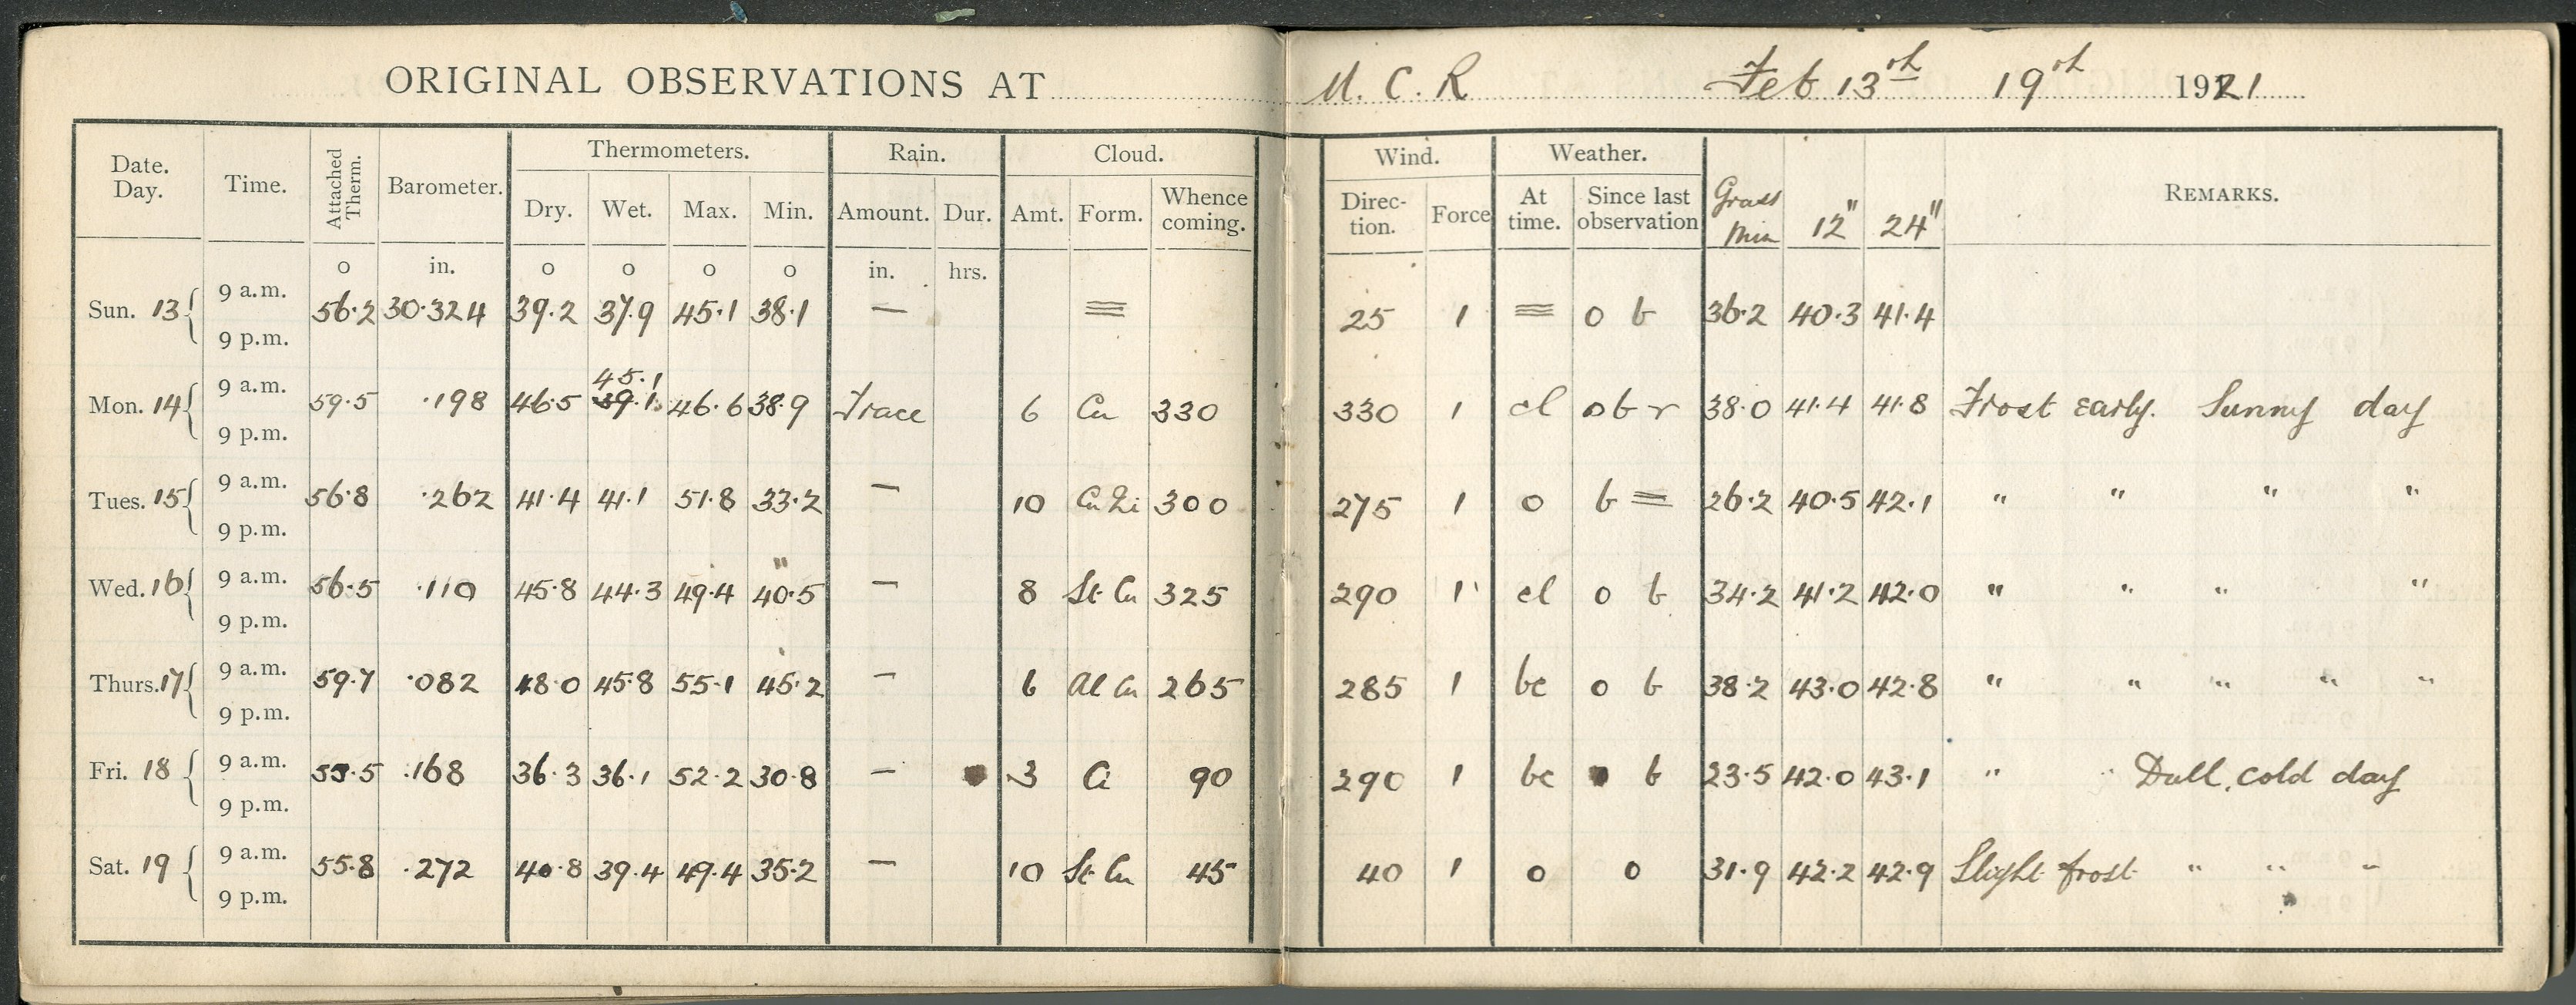 ORIGINAL OBSERVATIONS AT M. C. R Feb 13th 19th 1921
Date. Day. Time. Attached Therm. Barometer. Thermometers. Rain. Cloud. Wind. Weather. Grass Min 12" 24" REMARKS.
Dry. Wet. Max. Min. Amount. Dur. Amt. Form. Whence coming. Direction. Force At time. Since last observation
o in. o o o o in. hrs.
Sun. 13 { 9 a.m. 56.2 30.324 39.2 37.9 45.1 38.1 — ≡ 25 1 ≡ o b 36.2 40.3 41.4
9 p.m.
45.1
Mon. 14 { 9 a.m. 59.5 .198 46.5 39.1 46.6 38.9 Trace 6 Cu 330 330 1 cl o b r 38.0 41.4 41.8 Frost early. Sunny day
9 p.m.
Tues. 15 { 9 a.m. 56.8 .262 41.4 41.1 51.8 33.2 — 10 Cu Ni 300 275 1 o b = 26.2 40.5 42.1 " " " "
9 p.m.
Wed. 16 { 9 a.m. 56.5 .110 45.8 44.3 49.4 40.5 — 8 St Cu 325 290 1 cl o b 34.2 41.2 42.0 " " " "
9 p.m.
Thurs. 17 { 9 a.m. 59.7 .082 48.0 45.8 55.1 45.2 — 6 Al Cu 265 285 1 bc o b 38.2 43.0 42.8 " " " " "
9 p.m.
Fri. 18 { 9 a.m. 55.5 .168 36.3 36.1 52.2 30.8 — 3 Ci 90 290 1 bc b 23.5 42.0 43.1 " " Dull, cold day
9 p.m.
Sat. 19 { 9 a.m. 55.8 .272 40.8 39.4 49.4 35.2 — 10 St Cu 45 40 1 o o 31.9 42.2 42.9 Slight frost " " "
9 p.m.